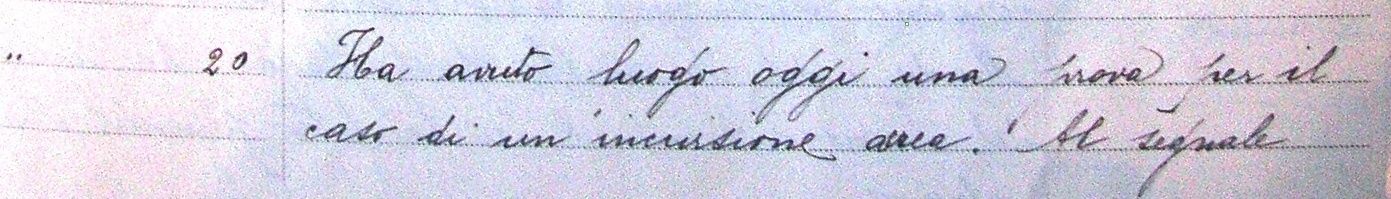 " 20 Ha avuto luogo oggi una prova per il
caso di un'incursione aerea. Al segnale